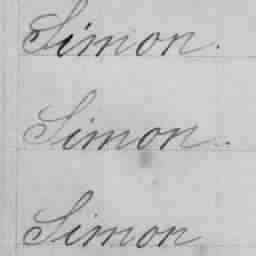 Simon.
Simon.
Simon